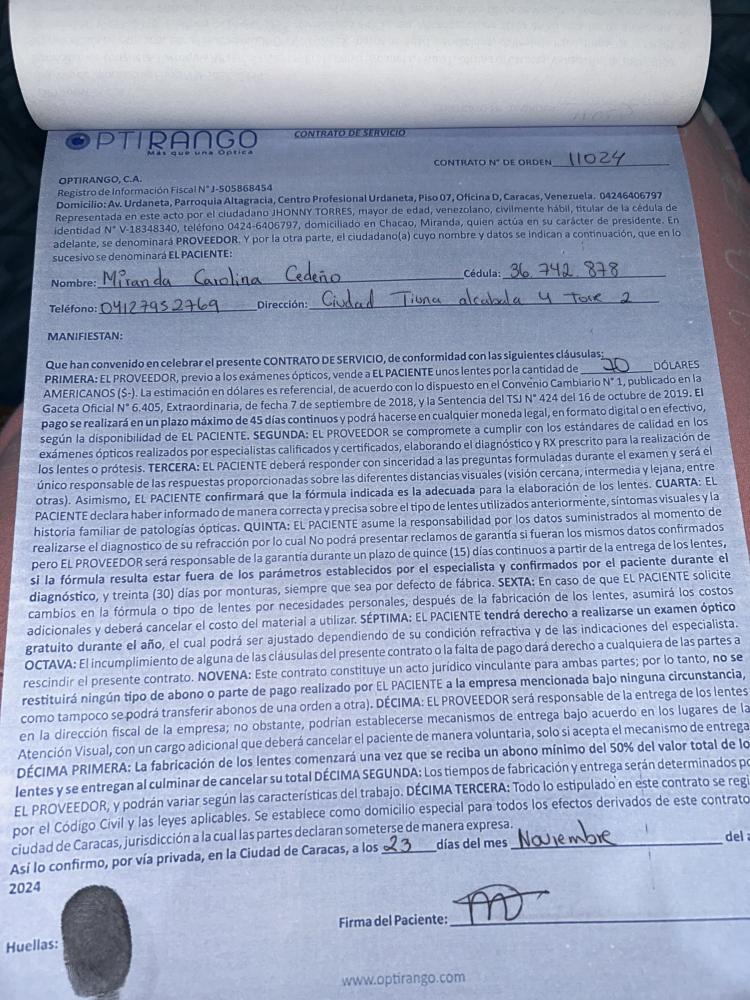 OPTIRANGO
Más que una Óptica
CONTRATO DE SERVICIO
CONTRATO N° DE ORDEN 11024
OPTIRANGO, C.A.
Registro de Información Fiscal N° J-505868454
Domicilio: Av. Urdaneta, Parroquia Altagracia, Centro Profesional Urdaneta, Piso 07, Oficina D, Caracas, Venezuela. 04246406797
Representada en este acto por el ciudadano JHONNY TORRES, mayor de edad, venezolano, civilmente hábil, titular de la cédula de
identidad N° V-18348340, teléfono 0424-6406797, domiciliado en Chacao, Miranda, quien actúa en su carácter de presidente. En
adelante, se denominará PROVEEDOR. Y por la otra parte, el ciudadano(a) cuyo nombre y datos se indican a continuación, que en lo
sucesivo se denominará EL PACIENTE:
Nombre: Miranda Carolina Cedeño Cédula: 36.742.878
Teléfono: 04127952769 Dirección: Ciudad Tiuna alcabala 4 torre 2
MANIFIESTAN:
Que han convenido en celebrar el presente CONTRATO DE SERVICIO, de conformidad con las siguientes cláusulas:
PRIMERA: EL PROVEEDOR, previo a los exámenes ópticos, vende a EL PACIENTE unos lentes por la cantidad de DÓLARES
AMERICANOS ($-). La estimación en dólares es referencial, de acuerdo con lo dispuesto en el Convenio Cambiario N° 1, publicado en la
Gaceta Oficial N° 6.405, Extraordinaria, de fecha 7 de septiembre de 2018, y la Sentencia del TSJ N° 424 del 16 de octubre de 2019. El
pago se realizará en un plazo máximo de 45 días continuos y podrá hacerse en cualquier moneda legal, en formato digital o en efectivo,
según la disponibilidad de EL PACIENTE. SEGUNDA: EL PROVEEDOR se compromete a cumplir con los estándares de calidad en los
exámenes ópticos realizados por especialistas calificados y certificados, elaborando el diagnóstico y RX prescrito para la realización de
los lentes o prótesis. TERCERA: EL PACIENTE deberá responder con sinceridad a las preguntas formuladas durante el examen y será el
único responsable de las respuestas proporcionadas sobre las diferentes distancias visuales (visión cercana, intermedia y lejana, entre
otras). Asimismo, EL PACIENTE confirmará que la fórmula indicada es la adecuada para la elaboración de los lentes. CUARTA: EL
PACIENTE declara haber informado de manera correcta y precisa sobre el tipo de lentes utilizados anteriormente, síntomas visuales y la
historia familiar de patologías ópticas. QUINTA: EL PACIENTE asume la responsabilidad por los datos suministrados al momento de
realizarse el diagnostico de su refracción por lo cual No podrá presentar reclamos de garantía si fueran los mismos datos confirmados
pero EL PROVEEDOR será responsable de la garantía durante un plazo de quince (15) días continuos a partir de la entrega de los lentes,
si la fórmula resulta estar fuera de los parámetros establecidos por el especialista y confirmados por el paciente durante el
diagnóstico, y treinta (30) días por monturas, siempre que sea por defecto de fábrica. SEXTA: En caso de que EL PACIENTE solicite
cambios en la fórmula o tipo de lentes por necesidades personales, después de la fabricación de los lentes, asumirá los costos
adicionales y deberá cancelar el costo del material a utilizar. SÉPTIMA: EL PACIENTE tendrá derecho a realizarse un examen óptico
gratuito durante el año, el cual podrá ser ajustado dependiendo de su condición refractiva y de las indicaciones del especialista.
OCTAVA: El incumplimiento de alguna de las cláusulas del presente contrato o la falta de pago dará derecho a cualquiera de las partes a
rescindir el presente contrato. NOVENA: Este contrato constituye un acto jurídico vinculante para ambas partes; por lo tanto, no se
restituirá ningún tipo de abono o parte de pago realizado por EL PACIENTE a la empresa mencionada bajo ninguna circunstancia,
como tampoco se podrá transferir abonos de una orden a otra). DÉCIMA: EL PROVEEDOR será responsable de la entrega de los lentes
en la dirección fiscal de la empresa; no obstante, podrían establecerse mecanismos de entrega bajo acuerdo en los lugares de la
Atención Visual, con un cargo adicional que deberá cancelar el paciente de manera voluntaria, solo si acepta el mecanismo de entrega
DÉCIMA PRIMERA: La fabricación de los lentes comenzará una vez que se reciba un abono mínimo del 50% del valor total de lo
lentes y se entregan al culminar de cancelar su total DÉCIMA SEGUNDA: Los tiempos de fabricación y entrega serán determinados po
EL PROVEEDOR, y podrán variar según las características del trabajo. DÉCIMA TERCERA: Todo lo estipulado en este contrato se regi
por el Código Civil y las leyes aplicables. Se establece como domicilio especial para todos los efectos derivados de este contrato
ciudad de Caracas, jurisdicción a la cual las partes declaran someterse de manera expresa.
Así lo confirmo, por vía privada, en la Ciudad de Caracas, a los 23 días del mes Noviembre del a
2024
Firma del Paciente:
Huellas:
www.optirango.com